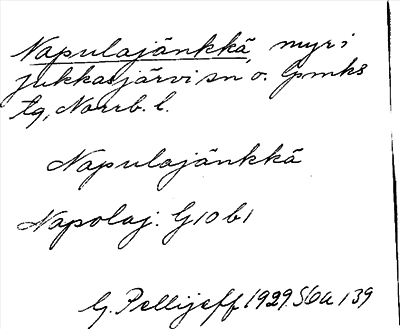 Napulajänkkä, myr i
Jukkasjärvi sn o. Gmks
tg, Norrb. l.
Napulajänkkä
Napolaj. G10 b1
G. Pellijeff 1929. S 139